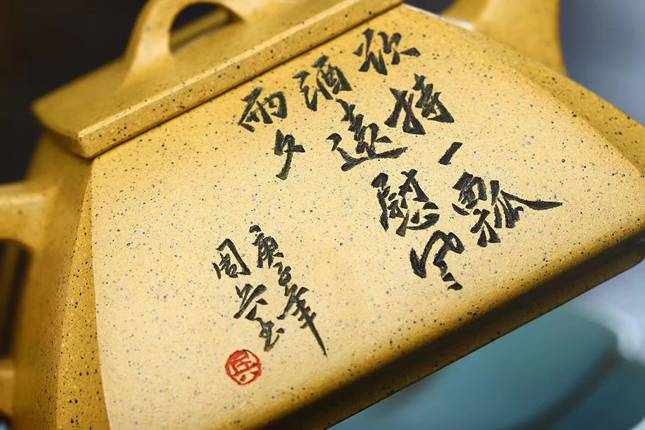 欲持一瓢
酒遠慰风
雨夕
庚子年
周